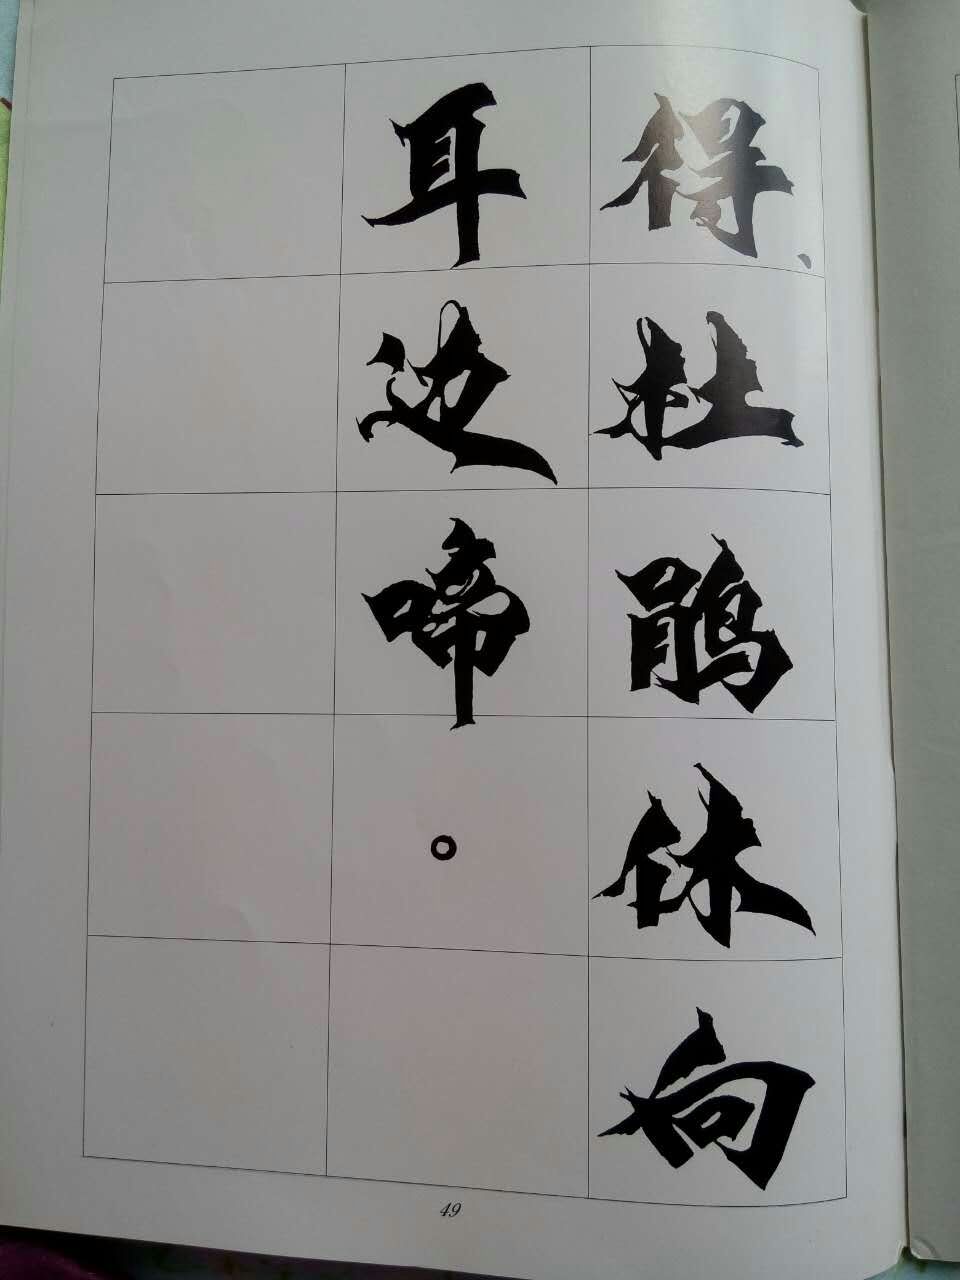 得、杜鹃休向
耳边啼。
49